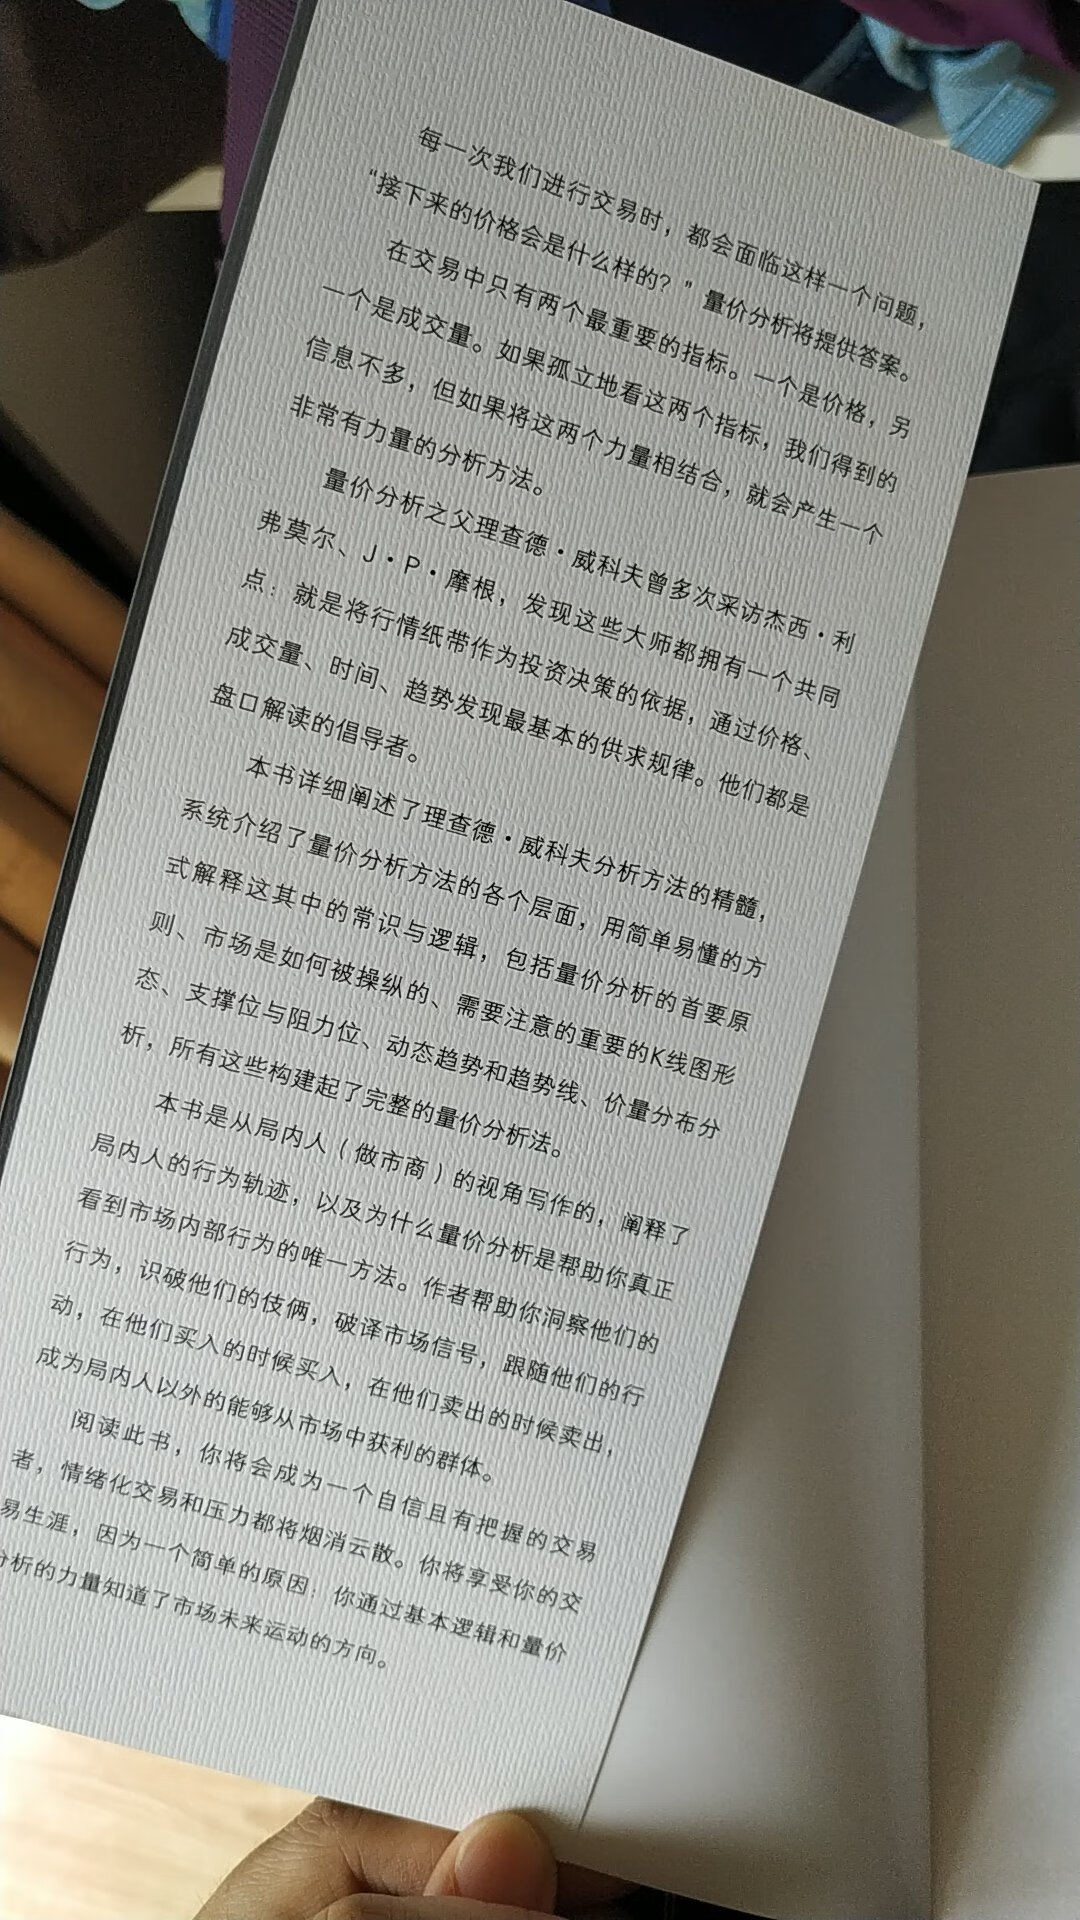 每一次我们进行交易时，都会面临这样一个问题，
“接下来的价格会是什么样的？”量价分析将提供答案。
在交易中只有两个最重要的指标。一个是价格，另
一个是成交量。如果孤立地看这两个指标，我们得到的
信息不多，但如果将这两个力量相结合，就会产生一个
非常有力量的分析方法。
量价分析之父理查德·威科夫曾多次采访杰西·利
弗莫尔、J·P·摩根，发现这些大师都拥有一个共同
点：就是将行情纸带作为投资决策的依据，通过价格、
成交量、时间、趋势发现最基本的供求规律。他们都是
盘口解读的倡导者。
本书详细阐述了理查德·威科夫分析方法的精髓，
系统介绍了量价分析方法的各个层面，用简单易懂的方
式解释这其中的常识与逻辑，包括量价分析的首要原
则、市场是如何被操纵的、需要注意的重要的K线图形
态、支撑位与阻力位、动态趋势和趋势线、价量分布分
析，所有这些构建起了完整的量价分析法。
本书是从局内人（做市商）的视角写作的，阐释了
局内人的行为轨迹，以及为什么量价分析是帮助你真正
看到市场内部行为的唯一方法。作者帮助你洞察他们的
行为，识破他们的伎俩，破译市场信号，跟随他们的行
动，在他们买入的时候买入，在他们卖出的时候卖出，
成为局内人以外的能够从市场中获利的群体。
阅读此书，你将会成为一个自信且有把握的交易
者，情绪化交易和压力都将烟消云散。你将享受你的交
易生涯，因为一个简单的原因：你通过基本逻辑和量价
分析的力量知道了市场未来运动的方向。